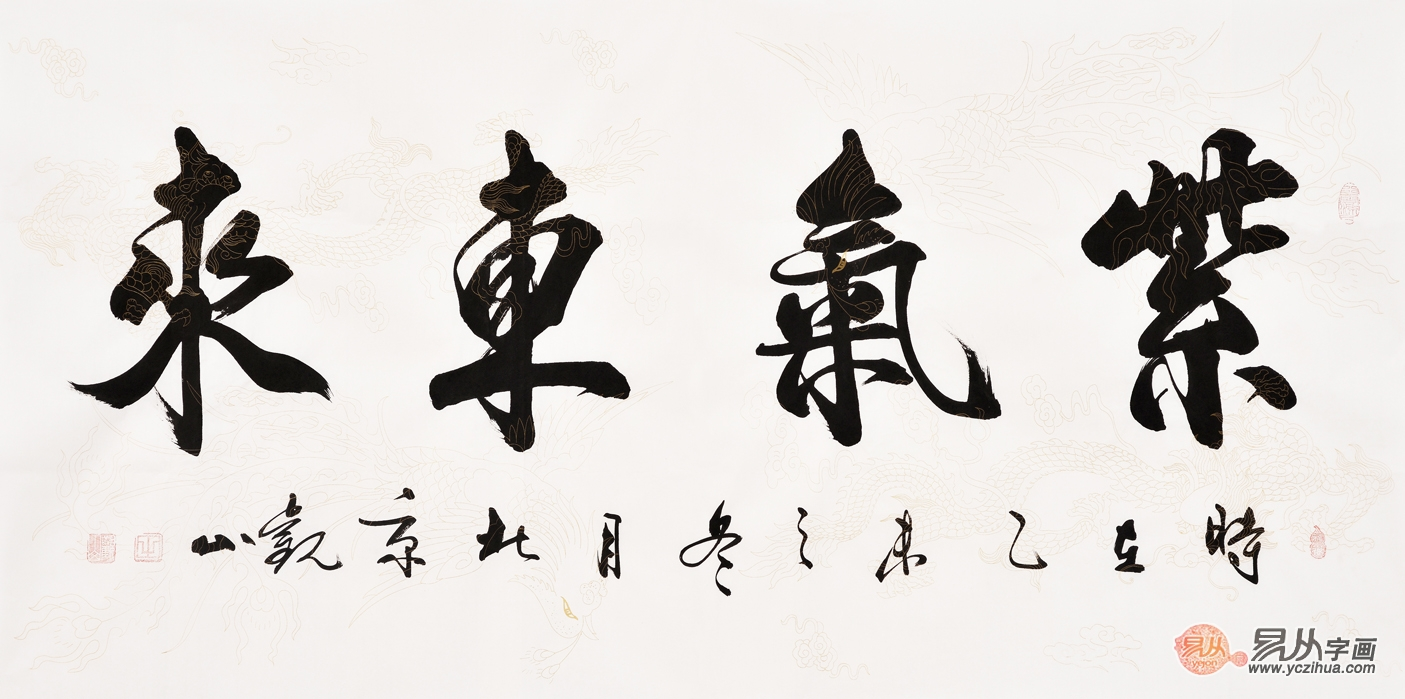 紫氣東來
時在乙未之冬月北京觀山
易从
易从字画
www.yczihua.com